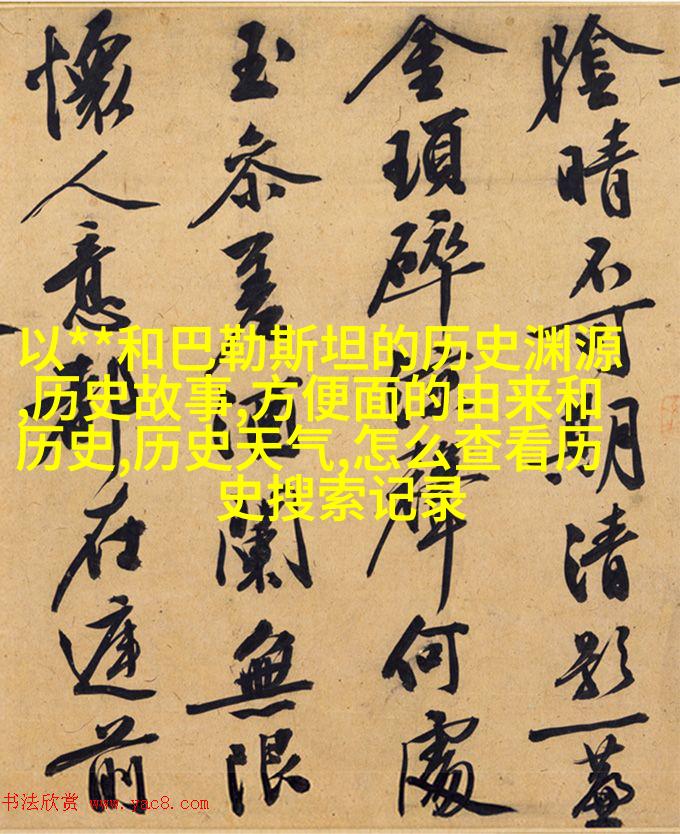 陰晴不可期清影一簾
金瑣碎聲何處
玉參差酒闌無限
懷人意都在庭前
以**和巴勒斯坦的历史渊源
,历史故事,方便面的由来和
历史,历史天气,怎么查看历
史搜索记录
书法欣赏 www.yac8.com